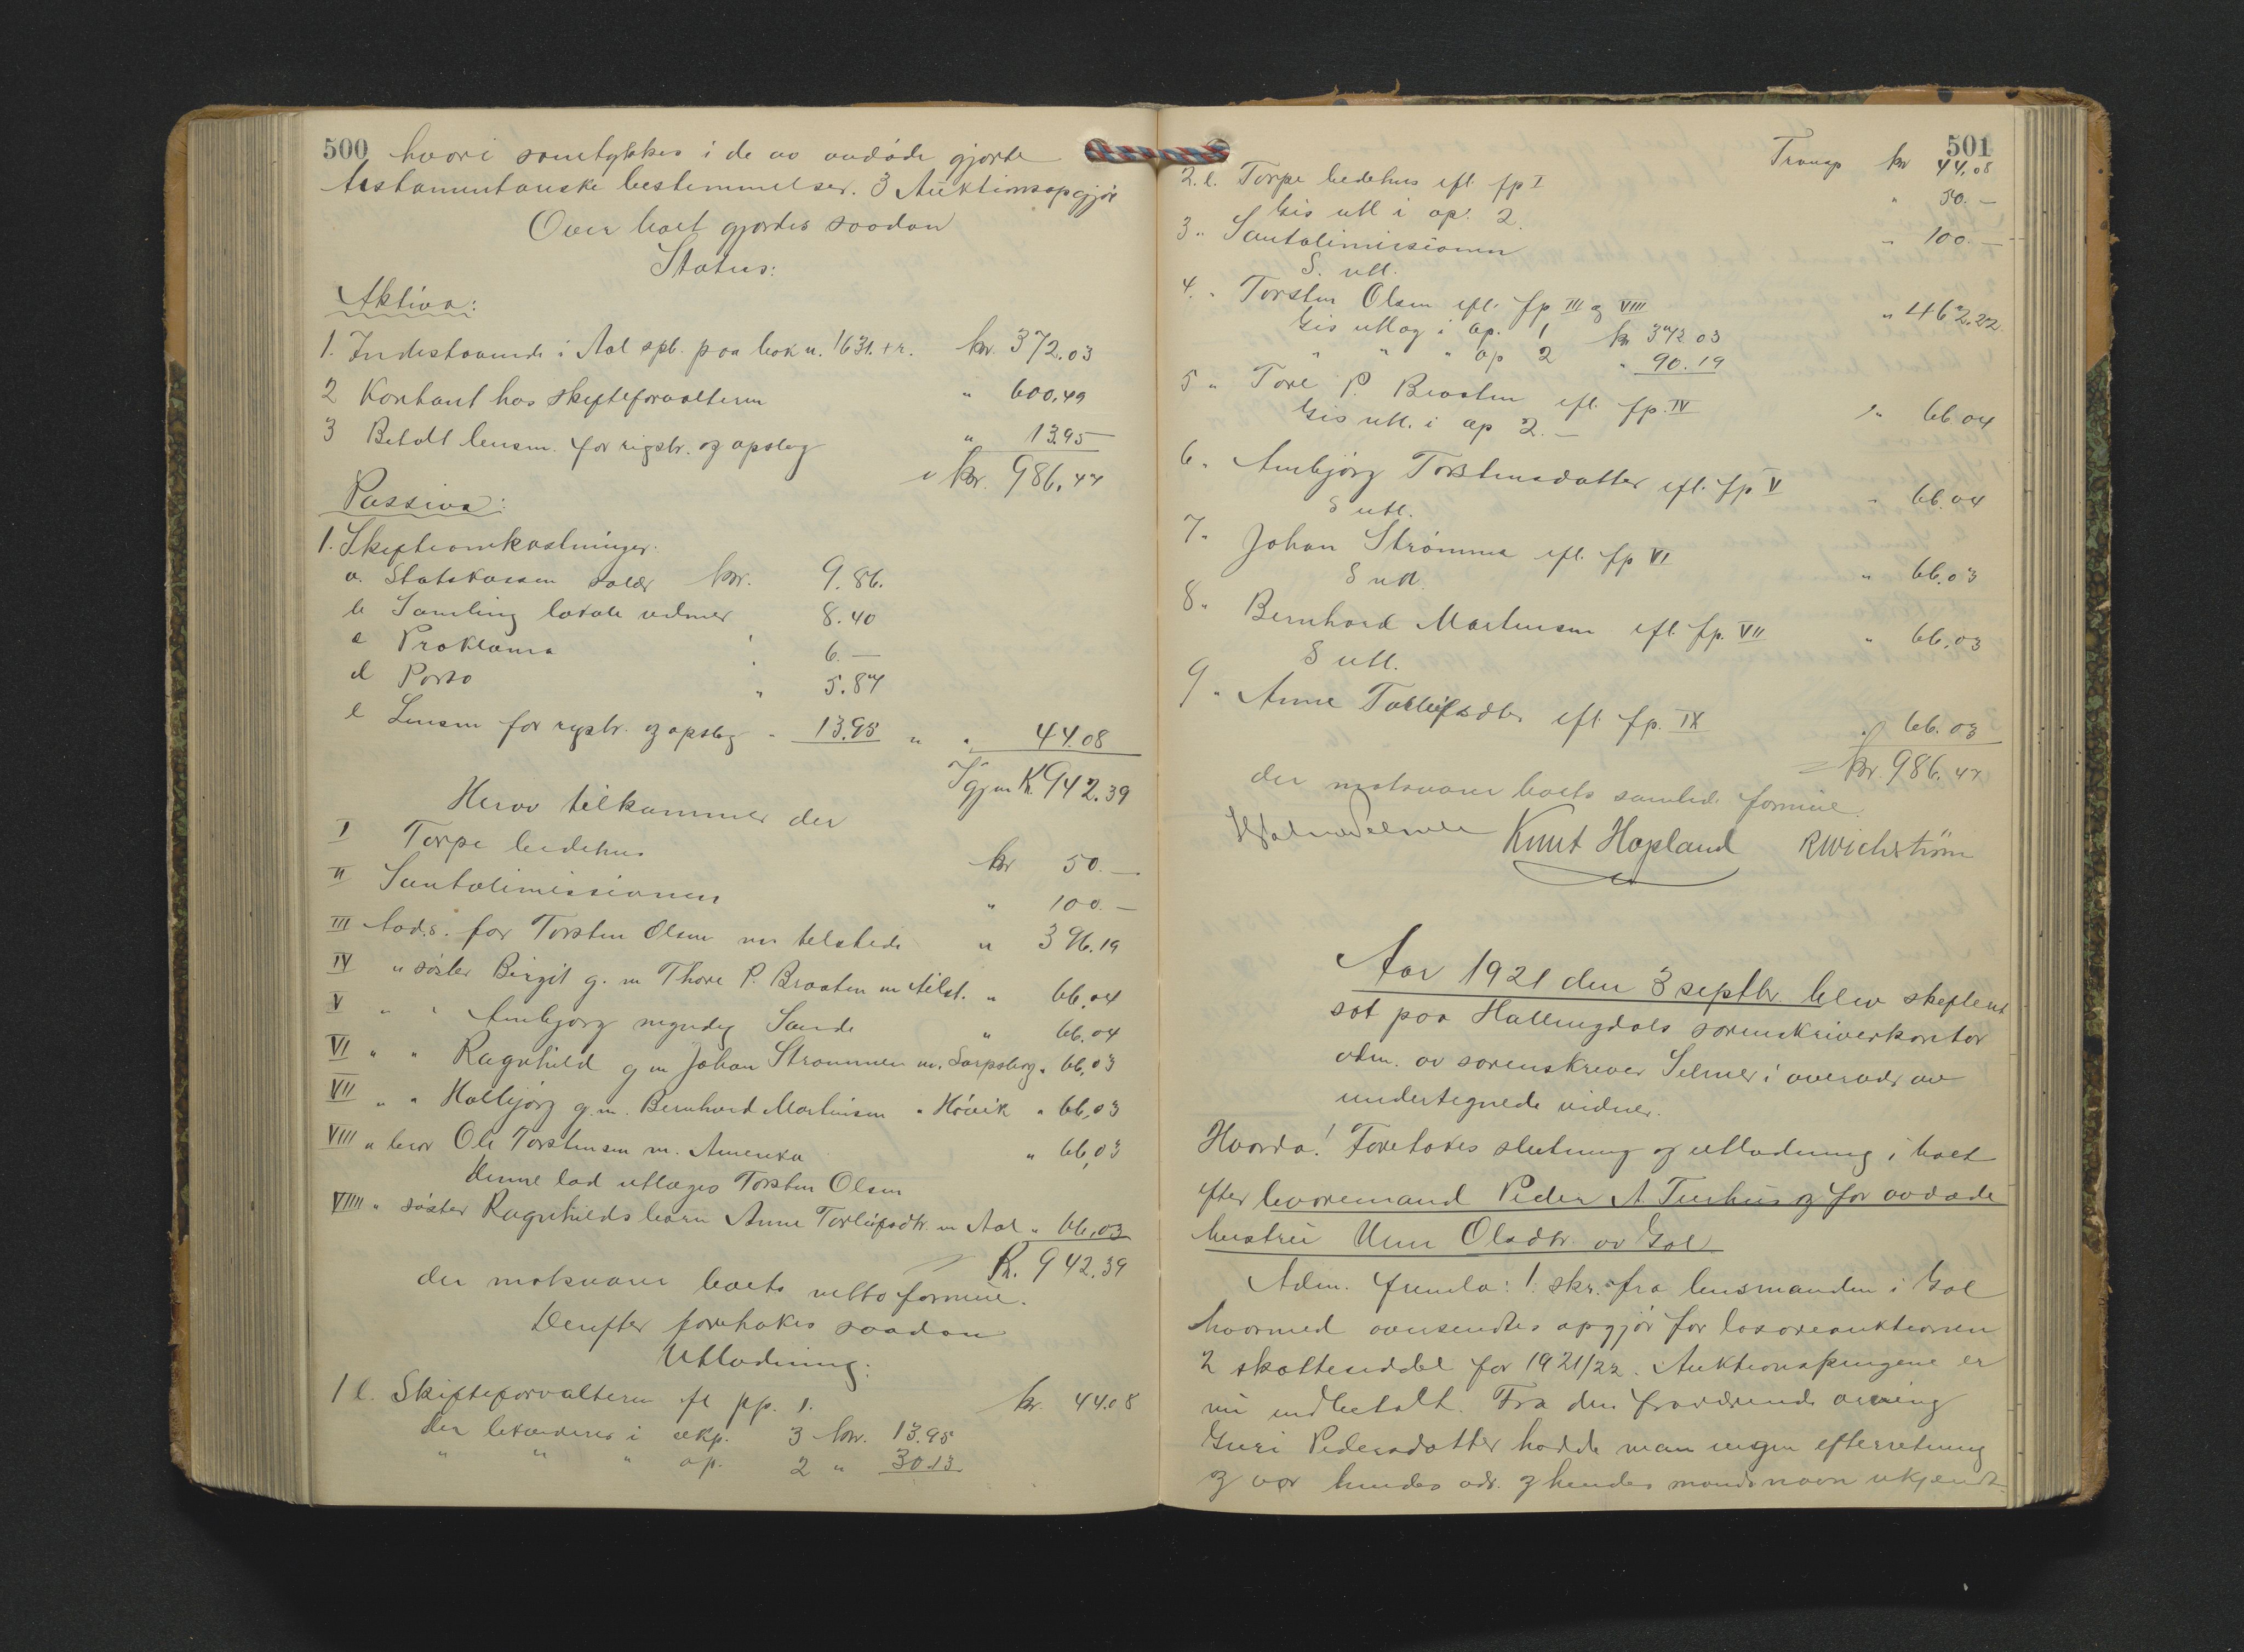 500 hvori samtykkes i de av avdöde gjorte
testamentariske bestemmelser. 3 Auktionsopgjör
Over boet gjordes saadan
Status:
Aktiva:
1. Indestaaende i Aal spb. paa bok n. 1631. + r. kr. 372.03
2 Kontant hos skifteforvalteren " 600.49
3 Betalt lensm. for rigstr. og opslag " 13.95
kr. 986.47
Passiva:
1. Skifteomkostninger.
a. Statskassen salær kr. 9.86.
b Samling lokale vidner 8.40
c Proklama " 6.—
d Porto " 5.87
e Lensm for regstr. og opslag " 13.95 " " 44.08
Igjen Kr. 942.39
Herav tilkommer der
I Torpe bedehus kr 50.—
II Santalmissionen " 100.—
III Avd.s. far Torsten Olsen nu tilstede " 396.19
IV " söster Birgit g. m Thore P. Braaten nu tilst. " 66.04
V " " Ambjørg myndig Sande " 66.04
VI " " Ragnhild g m Johan Strømmen nu. Sarpsborg " 66,03
VII " " Halbjörg g.m. Bernhard Martinsen " Hövik " 66,03
VIII " bror Ole Torstensen nu. Amerika " 66,03
Denne lod utlægges Torsten Olsen
VIIII " söster Ragnhilds barn Anne Torleifsdtr. nu Aal " 66,03
Kr. 942.39
der motsvarer boets nettoformue.
Derefter foretokes saadan
Utlodning:
1 l. Skifteforvalteren efl pp. 1. kr. 44.08
Der likvideres i akp. 3 kr. 13.95
" " " ap. 2 " 30.13
501
Transp kr 44.08
2. l. Torpe bedehus efl. fp I " 50.—
Gis utl i ap. 2.
3 " Santalmissionen " 100.—
S. utl.
4. " Torsten Olsen efl. fp III og VIII " 462.22
Gis utlæg i ap. 1 kr 372 03
" " " ap 2 " 90.19
5 " Tore P. Braaten efl. fp. IV " 66 04
Gis utl. i ap 2.—
6 " Ambjørg Torstensdatter efl. fp V " 66.04
S utl.
7 " Johan Strömmen efl. fp VI " 66.03
S utl.
8 " Bernhard Martinsen efl. fp. VII " 66,03
S utl.
9 " Anne Torleifsdtr efl. fp. IX " 66.03
kr. 986.47
der motsvarer boets samlede formue.
Knut Hopland RWichstrøm
Aar 1921 den 3 septbr. blev skifteret
sat paa Hallingdals sorenskriverkontor
adm. av sorenskriver Selmer i overvær av
undertegnede vidner.
Hvorda! Foretokes slutning og utlodning i boet
efter levoremand Peder A Turhus og for avdøde
hustru Unn Olsdtr. av Gol
Adm. fremla: 1. skr. fra lensmanden i Gol
hvormed oversendtes opgjör for løsøreauktionen
2 skatteseddel for 1921/22. Auktionspengene er
nu indbetalt. Fra den fraværende arving
Guri Pedersdatter hadde man ingen efterretning
og var hendes adr. og hendes mands navn ukjendt.